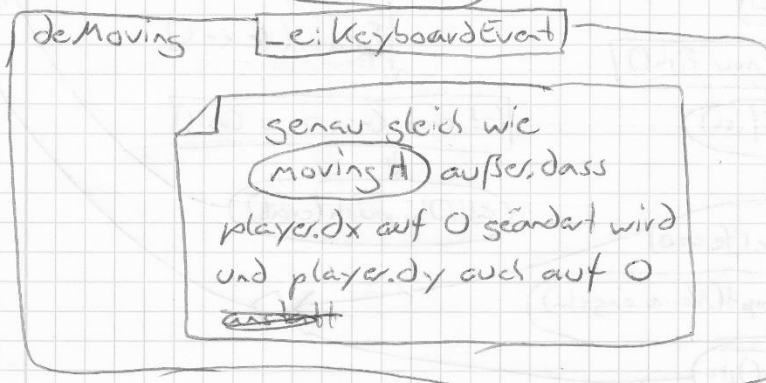 deMoving _e: KeyboardEvent
genau gleich wie
moving A außer, dass
player.dx auf 0 geändert wird
und player.dy auch auf 0